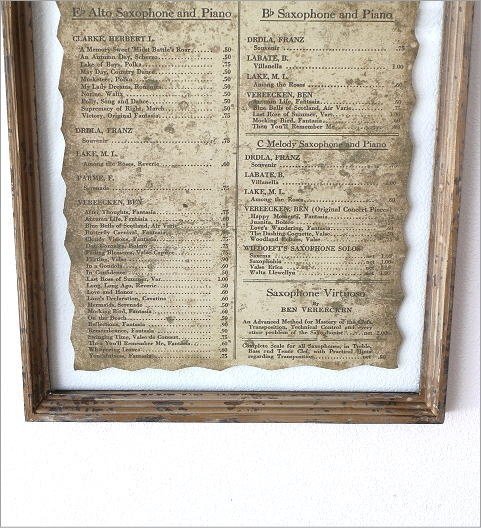 E♭ Alto Saxophone and Piano
CLARKE, HERBERT L.
A Memory Sweet 'Midst Battle's Roar .50
An Autumn Day, Scherzo .50
Lake of Bays, Polka .75
May Day, Country Dance .50
Musketeer, Polka .75
My Lady Dreams, Romanza .50
Norine, Waltz .50
Polly, Song and Dance .50
Supremacy of Right, March .50
Victory, Original Fantasia .75
DRDLA, FRANZ
Souvenir .75
LAKE, M. L.
Among the Roses, Reverie .60
PARME, F.
Serenade .75
VEREECKEN, BEN
After Thoughts, Fantasia .75
Autumn Life, Fantasia .60
Blue Bells of Scotland, Air Varie
Butterfly Caprice, Fantasia
Cloudy Visions, Fantasia
Bolero
Fading Blossoms, Valse Caprice .75
.90
In a Gondola
In Confidence .60
Last Rose of Summer, Var. 1.00
Long, Long Ago, Reverie .50
Love and Honor .60
Love's Declaration, Cavatina .60
Mermaids, Serenade .50
Mocking Bird, Fantasia .60
On the Beach .50
Reflections, Fantasia .90
Remembrance, Fantasia .50
Swinging Time, Valse de Concert .75
Then You'll Remember Me, Fantasia .60
Whispering Leaves .60
Youthfulness, Fantasia .75
B♭ Saxophone and Piano
DRDLA, FRANZ
Souvenir .75
LABATE, B.
Villanella 1.00
LAKE, M. L.
Among the Roses .60
VEREECKEN, BEN
Autumn Life, Fantasia .50
Blue Bells of Scotland, Air Varie
Last Rose of Summer, Var.
Mocking Bird, Fantasia .60
Then You'll Remember Me .60
C Melody Saxophone and Piano
DRDLA, FRANZ
Souvenir .75
LABATE, B.
Villanella 1.00
LAKE, M. L.
Among the Roses .60
VEREECKEN, BEN (Original Concert Pieces)
Happy Moments, Fantasia
Juanita, Bolero
Love's Wandering, Fantasia
The Dashing Coquette, Valse
Woodland Echoes, Valse
WIEDOEFT'S SAXOPHONE SOLOS
Saxema net 1.00
Saxophobia net 1.00
Valse Erica net 1.00
Waltz Llewellyn net 1.00
Saxophone Virtuoso
By
BEN VEREECKEN
An Advanced Method for Mastery of
Transposition, Technical Control and every
other problem of the Saxophonist net 2.00
Complete Scale for all Saxophones, in Treble,
Bass and Tenor Clef, with Practical Hints
regarding Transposition net .50